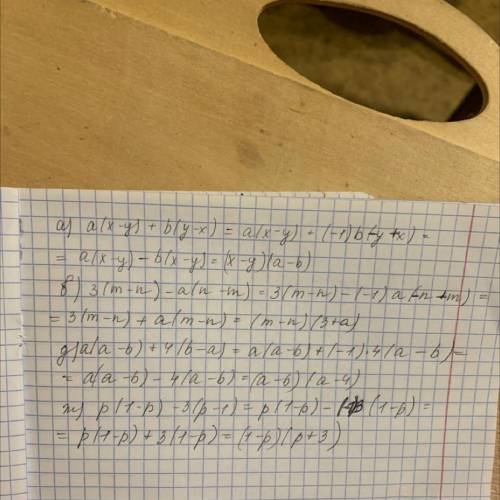 а) a(x-y) + b(y-x) = a(x-y) + (-1)b(-y+x) =
= a(x-y) - b(x-y) = (x-y)(a-b)
в) 3(m-n) - a(n-m) = 3(m-n) - (-1)a(-n+m) =
= 3(m-n) + a(m-n) = (m-n)(3+a)
д) a(a-b) + 4(b-a) = a(a-b) + (-1)·4(a-b) =
= a(a-b) - 4(a-b) = (a-b)(a-4)
ж) p(1-p) - 3(p-1) = p(1-p) - (1-p) =
= p(1-p) + 3(1-p) = (1-p)(p+3)